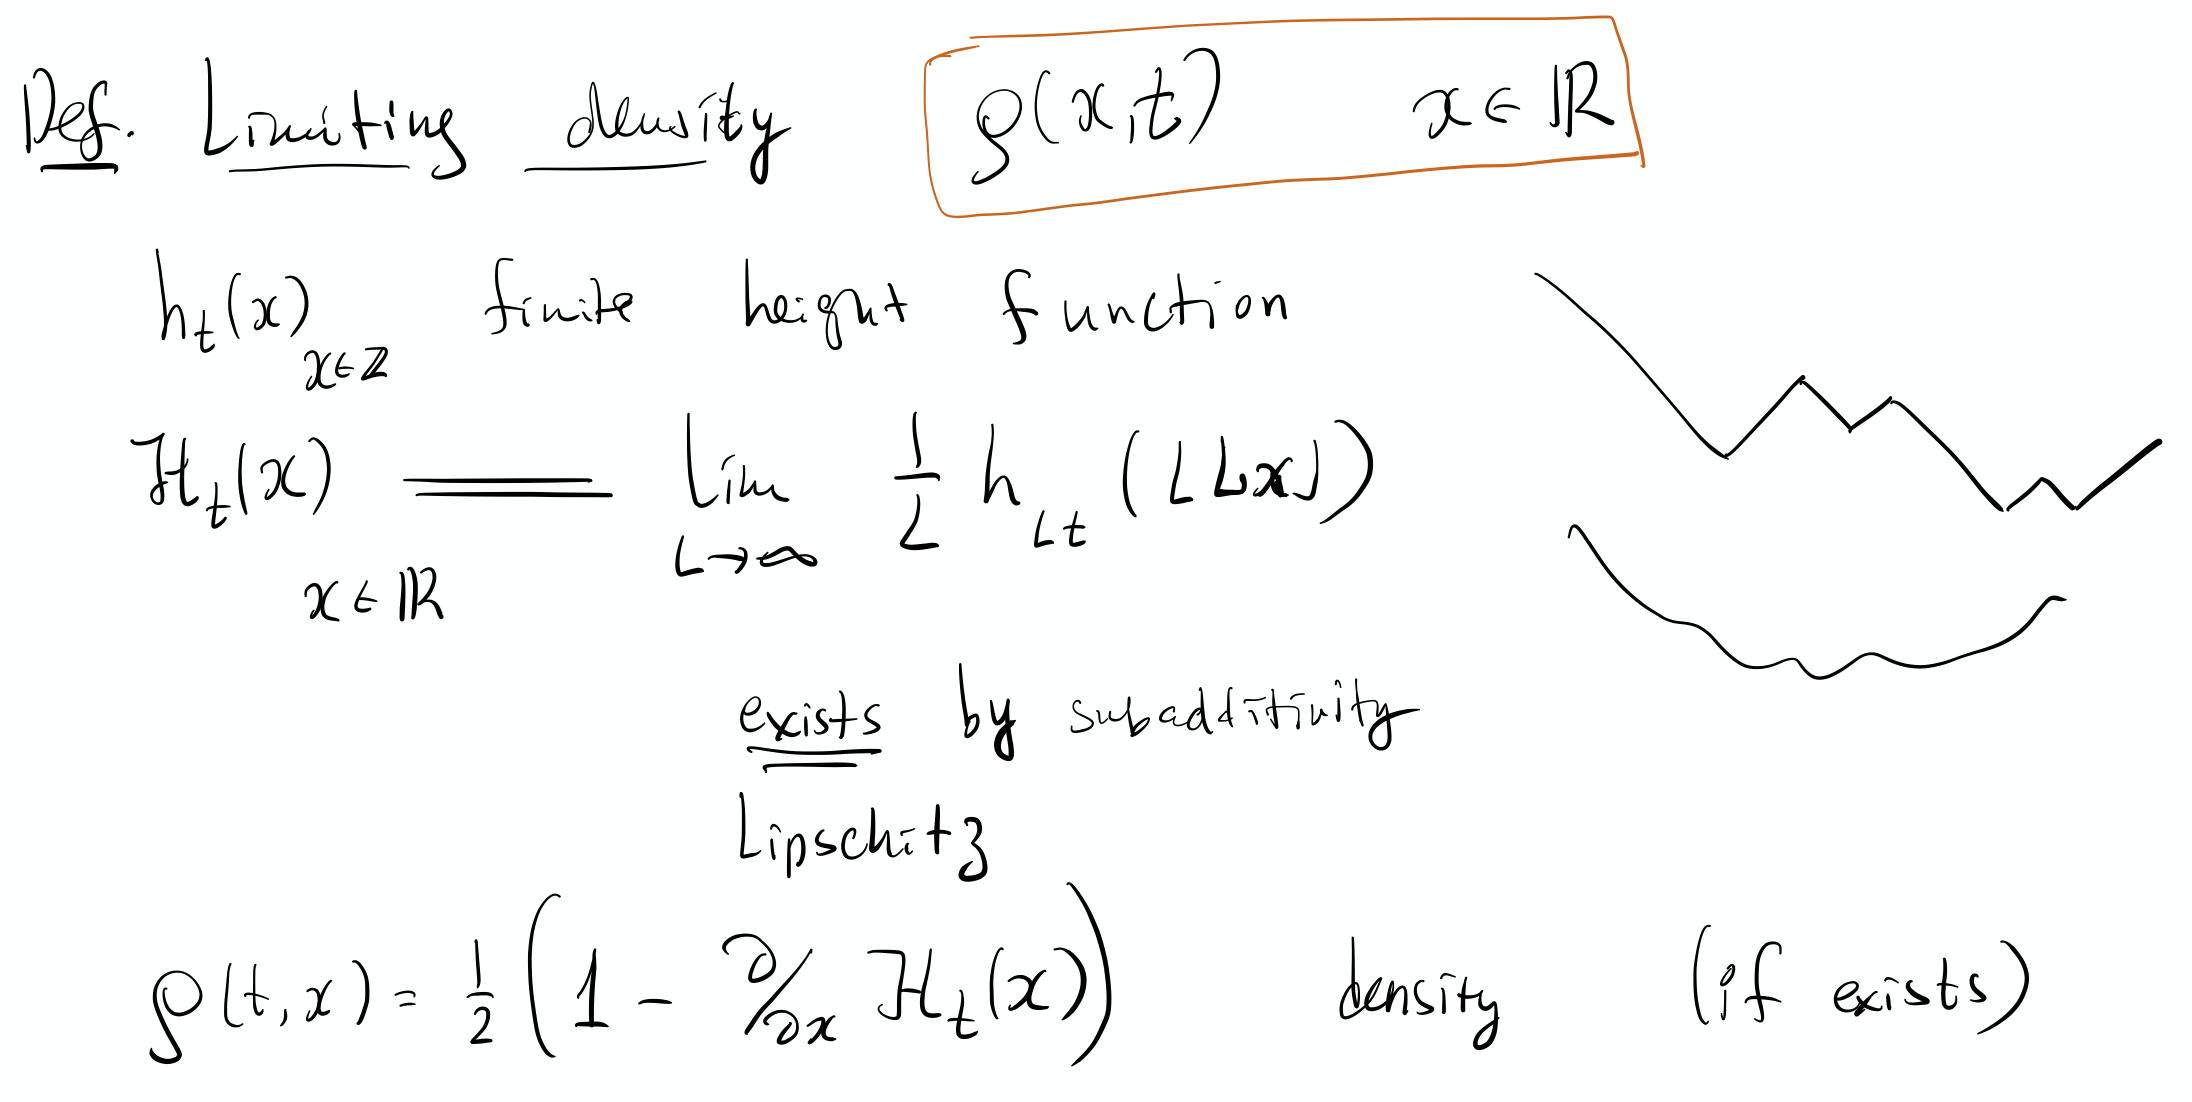 Def. Limiting density ρ(x,t) x ∈ ℝ
h_t(x) x∈ℤ finite height function
ℋ_t(x) = lim_{L→∞} 1/L h_{Lt} (⌊Lx⌋)
x ∈ ℝ
exists by subadditivity
Lipschitz
ρ(t,x) = 1/2 (1 - ∂/∂x ℋ_t(x)) density (if exists)